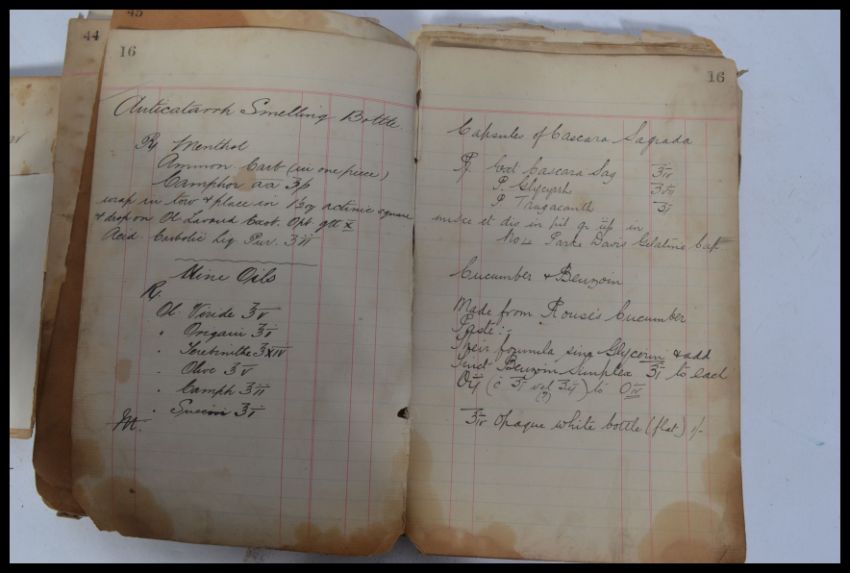 44
45
16
Anticatarrh Smelling Bottle.
Rx Menthol
Ammon Carb (in one piece)
Camphor aa ʒß
wrap in tow & place in 1½oz actinic square
& drop on Ol Lavand Exot. Opt. gtt x
Acid Carbolic Liq Pur. ʒii
Nine Oils
R.
Ol Viride ʒv
" Origani ʒi
" Terebinthe ʒxiv
" Olive ʒv
" Camph ʒii
" Succin ʒi
M.
16
Capsules of Cascara Sagrada
Rx Ext Cascara Sag ʒiv
P. Glycyrrh
P. Tragacanth ʒi
misce et div in pil gr iifs in
No 4 Parke Davis Gelatine Caps
Cucumber & Benzoin
Made from Rouse's Cucumber
Paste:-
Their formula sing Glycerin & add
Tinct Benzoin Simplex ʒi to each
to
opaque white bottle (flat) 1/-